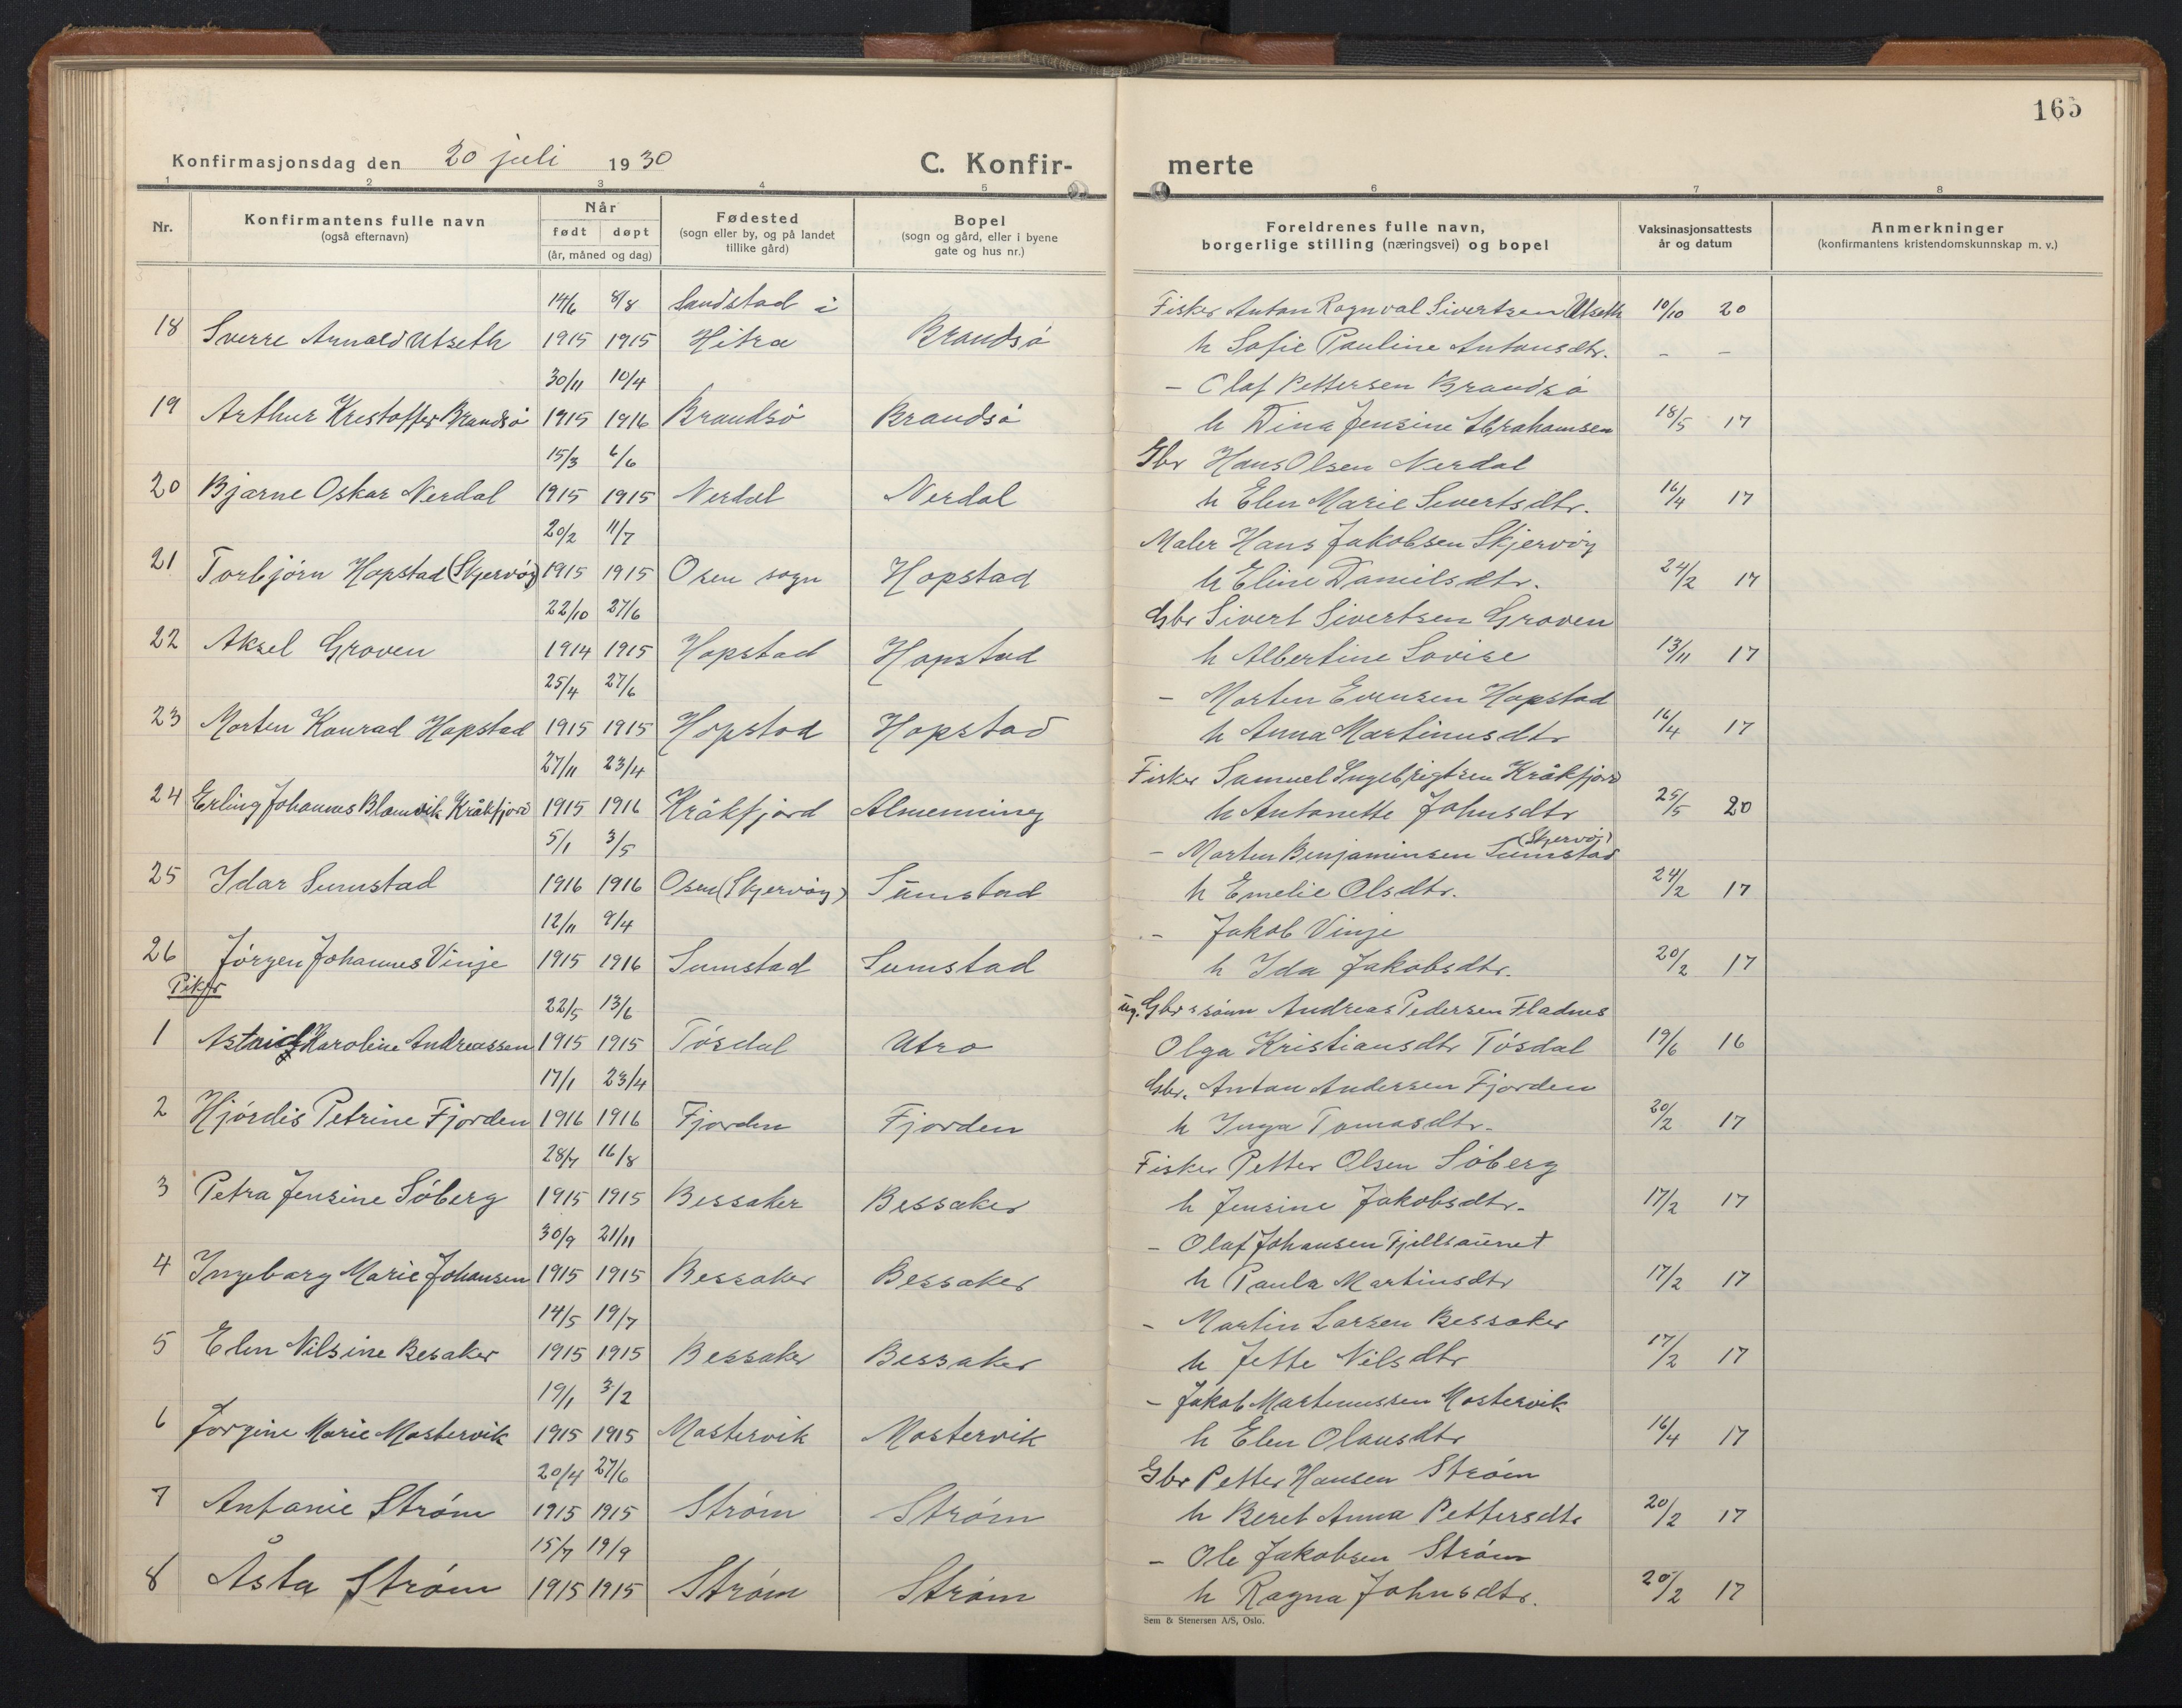 165
Konfirmasjonsdag den 20 juli 1930
C. Konfir-
merte
1 2 3 4 5 6 7 8
Nr.
Konfirmantens fulle navn
(også efternavn)
Når
født døpt
(år, måned og dag)
Fødested
(sogn eller by, og på landet
tillike gård)
Bopel
(sogn og gård, eller i byene
gate og hus nr.)
Foreldrenes fulle navn,
borgerlige stilling (næringsvei) og bopel
Vaksinasjonsattests
år og datum
Anmerkninger
(konfirmantens kristendomskunnskap m. v.)
14/6 8/8 Sandstad i Fisker Anton Ragnval Sivertsen Utseth 10/10 20
18 Sverre Arnold Utseth 1915 1915 Hitra Brandsø h Sofie Pauline Antonsdtr. - -
30/11 10/4 - Olaf Pettersen Brandsø
19 Arthur Kristoffer Brandsø 1915 1916 Brandsø Brandsø h Dina Jensine Abrahamsen 18/5 17
15/3 6/6 Gbr Hans Olsen Nerdal
20 Bjarne Oskar Nerdal 1915 1915 Nerdal Nerdal h Elen Marie Sivertsdtr. 16/4 17
20/2 11/7 Maler Hans Jakobsen Skjervøy
21 Torbjørn Hopstad (Skjervøy) 1915 1915 Osen sogn Hopstad h Eline Danielsdtr. 24/2 17
22/10 27/6 Gbr Sivert Sivertsen Groven
22 Aksel Groven 1914 1915 Hopstad Hopstad h Albertine Lovise 13/11 17
25/4 27/6 - Morten Evensen Hopstad
23 Morten Konrad Hopstad 1915 1915 Hopstad Hopstad h Anna Martinusdtr 16/4 17
27/11 23/4 Fisker Samuel Ingebrigtsen Kråkfjord
24 Erling Johannes Blomvik Kråkfjord 1915 1916 Kråkfjord Almenning h Antonette Johnsdtr 25/5 20
5/1 3/5 - Morten Benjaminsen Sumstad (Skjervøy)
25 Idar Sumstad 1916 1916 Osen (Skjervøy) Sumstad h Emelie Olsdtr. 24/2 17
12/11 9/4 - Jakob Vinje
26 Jørgen Johannes Vinje 1915 1916 Sumstad Sumstad h Ida Jakobsdtr. 20/2 17
Piker
22/5 13/6 ug. Gbr s sønn Andreas Pedersen Fladnes
1 Astrid Karoline Andreassen 1915 1915 Tøsdal Utro Olga Kristiansdtr Tøsdal 19/6 16
17/1 23/4 Gbr. Anton Andersen Fjorden
2 Hjørdis Petrine Fjorden 1916 1916 Fjorden Fjorden h Inga Tomasdtr. 20/2 17
28/7 16/8 Fisker Petter Olsen Søberg
3 Petra Jensine Søberg 1915 1915 Bessaker Bessaker h Jensine Jakobsdtr. 17/2 17
30/9 21/11 - Olaf Johansen Fjellsaunet
4 Ingeborg Marie Johansen 1915 1915 Bessaker Bessaker h Paula Martinsdtr 17/2 17
14/5 19/7 - Martin Larsen Bessaker
5 Elen Nilsine Besaker 1915 1915 Bessaker Bessaker h Jette Nilsdtr 17/2 17
19/1 3/2 - Jakob Martinussen Mostervik
6 Jorgine Marie Mostervik 1915 1915 Mostervik Mostervik h Elen Olausdtr 16/4 17
20/4 27/6 Gbr Petter Hansen Strøm
7 Antonie Strøm 1915 1915 Strøm Strøm h Beret Anna Pettersdtr 20/2 17
15/7 19/9 - Ole Jakobsen Strøm
8 Åsta Strøm 1915 1915 Strøm Strøm h Ragna Johnsdtr. 20/2 17
Sem & Stenersen A/S, Oslo.